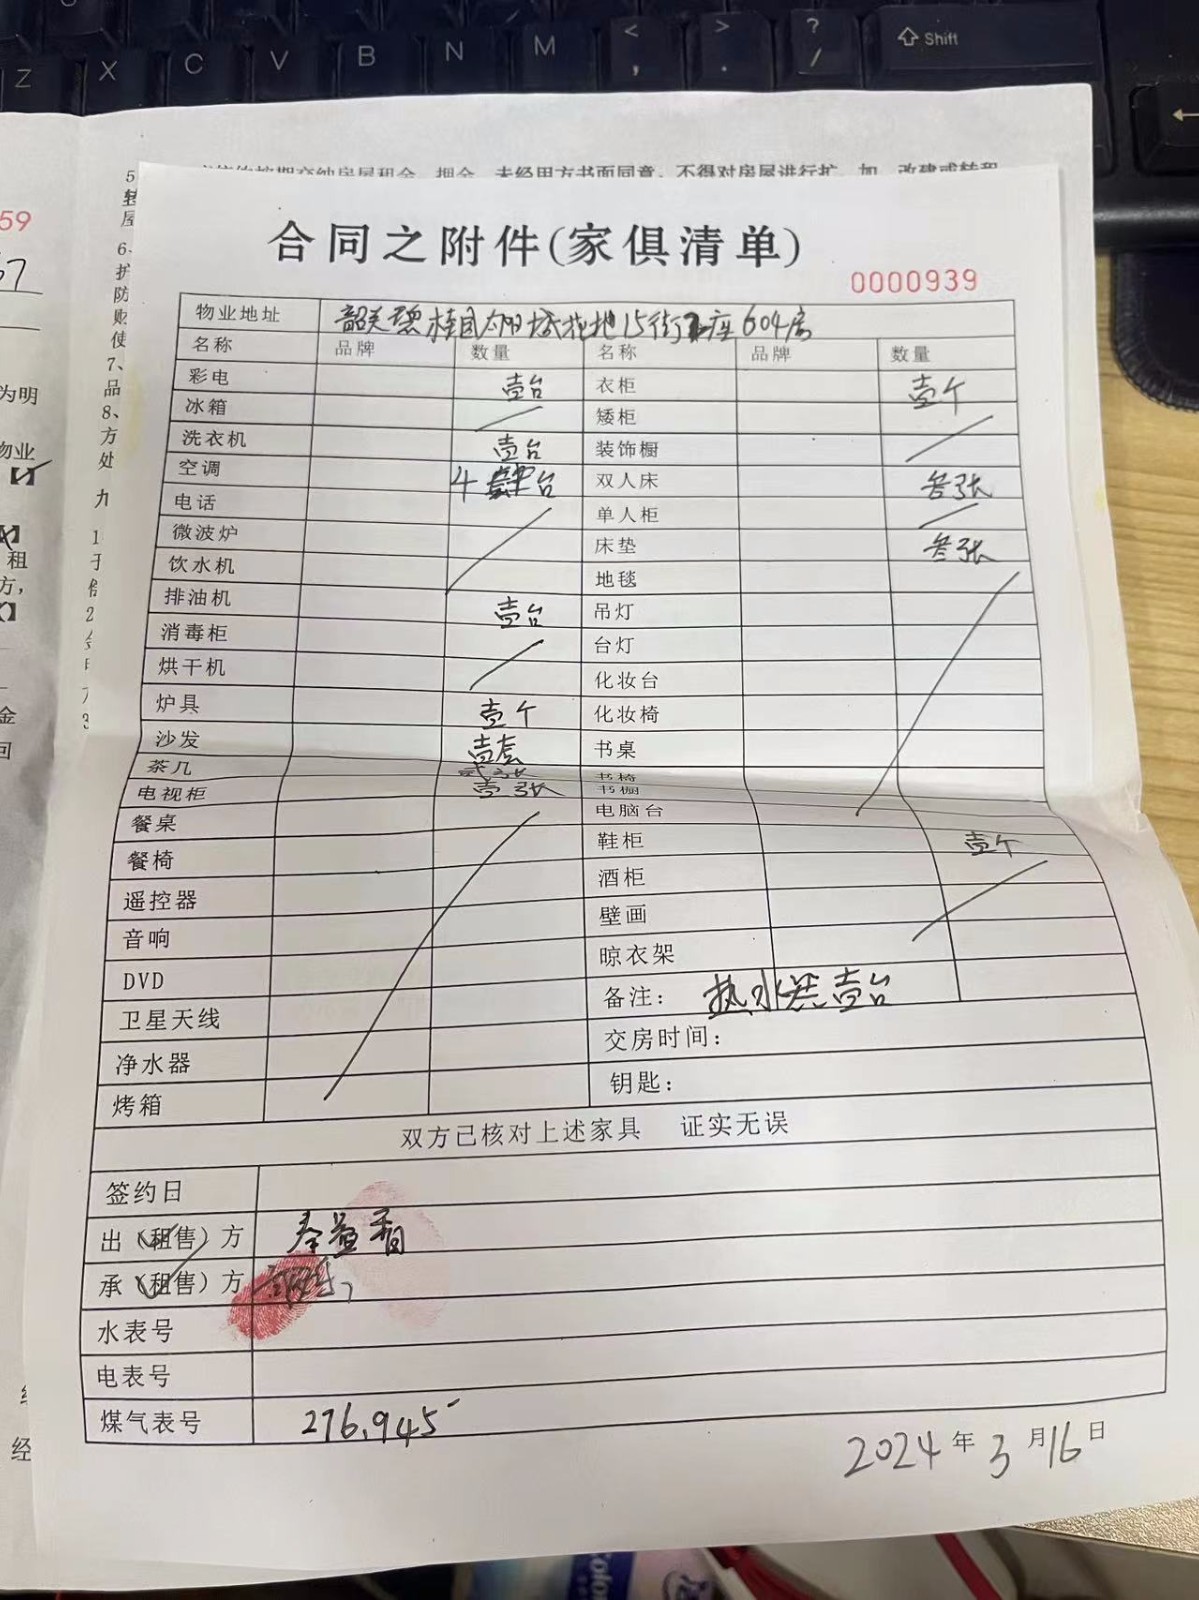 Z X C V B N M < , > . ? / Shift
59
为明
物业
租
方,
金
回
经
5
6、
护
防
财
使
7、
品
8、
方
处
九
未经甲方书面同意，不得对房屋进行扩、加、改建或转租
合同之附件(家俱清单)
0000939
物业地址 韶关碧桂园太阳城花地15街2座604房
名称 品牌 数量 名称 品牌 数量
彩电 壹台 衣柜 壹个
冰箱 / 矮柜
洗衣机 壹台 装饰橱
空调 4 肆台 双人床 叁张
电话 单人柜
微波炉 床垫 叁张
饮水机 地毯
排油机 壹台 吊灯
消毒柜 台灯
烘干机 化妆台
炉具 壹个 化妆椅
沙发 壹套 书桌
茶几 书椅
电视柜 壹张 书橱
餐桌 电脑台
餐椅 鞋柜 壹个
遥控器 酒柜
音响 壁画
DVD 晾衣架
卫星天线 备注： 热水器壹台
净水器 交房时间：
烤箱 钥匙：
双方已核对上述家具 证实无误
签约日
出（租售）方
承（租售）方
水表号
电表号
煤气表号 276.945
2024年3月16日